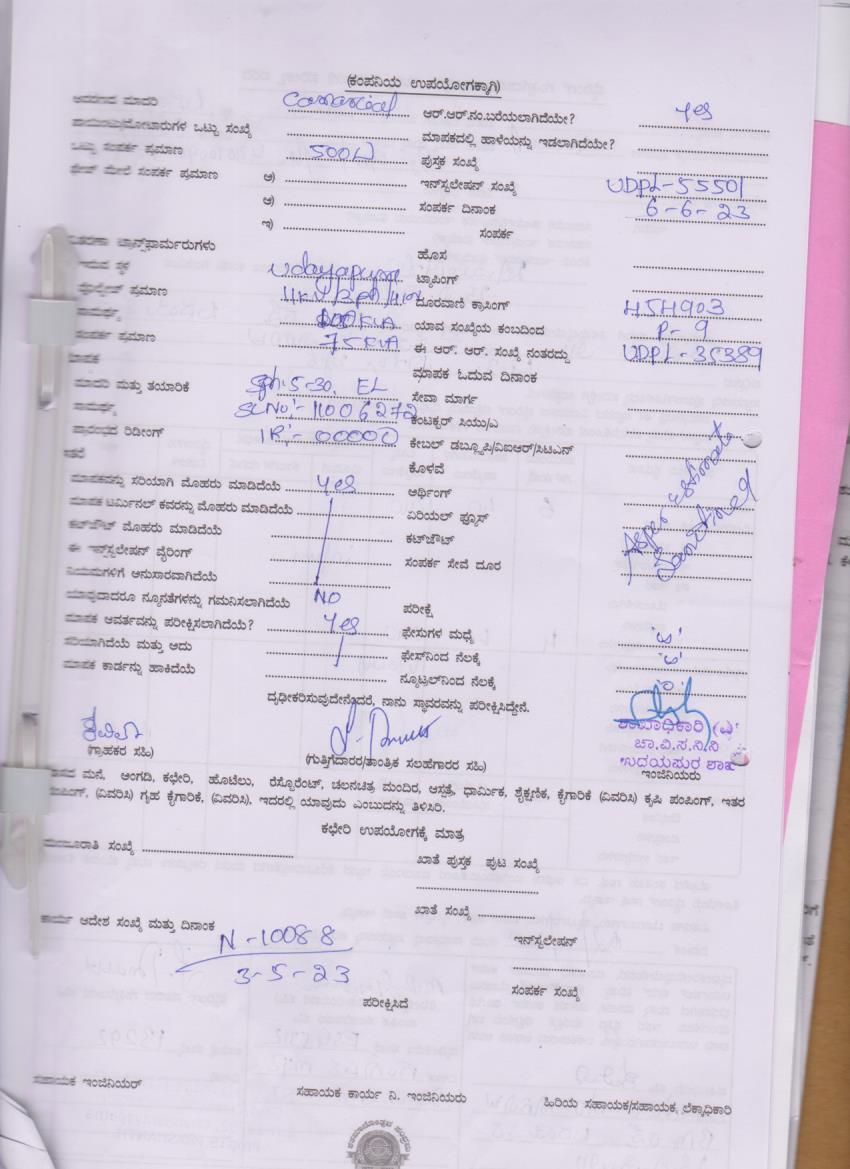 (ಕಂಪನಿಯ ಉಪಯೋಗಕ್ಕಾಗಿ)
ಮಾದರಿ Comercial ಆರ್.ಆರ್.ನಂ.ಬರೆಯಲಾಗಿದೆಯೇ? yes
ಒಟ್ಟು ಸಂಖ್ಯೆ ಮಾಪಕದಲ್ಲಿ ಹಾಳೆಯನ್ನು ಇಡಲಾಗಿದೆಯೇ?
ಒಟ್ಟು ಸಂಪರ್ಕ ಪ್ರಮಾಣ 500W ಪುಸ್ತಕ ಸಂಖ್ಯೆ
ಫೇಸ್ ಮೇಲೆ ಸಂಪರ್ಕ ಪ್ರಮಾಣ ಅ) ಇನ್‌ಸ್ಟಲೇಷನ್ ಸಂಖ್ಯೆ UDPL-55501
ಆ) ಸಂಪರ್ಕ ದಿನಾಂಕ 6-6-23
ಇ) ಸಂಪರ್ಕ
ಟ್ರಾನ್ಸ್‌ಫಾರ್ಮರುಗಳು ಹೊಸ
ಇರುವ ಸ್ಥಳ Udayapura ಟ್ಯಾಪಿಂಗ್
ಪ್ರಮಾಣ 11KV/ ದೂರವಾಣಿ ಕ್ರಾಸಿಂಗ್ 454903
ಸಾಮರ್ಥ್ಯ 100KVA ಯಾವ ಸಂಖ್ಯೆಯ ಕಂಬದಿಂದ P-9
ಸಂಪರ್ಕ ಪ್ರಮಾಣ 75KVA ಈ ಆರ್. ಆರ್. ಸಂಖ್ಯೆ ನಂತರದ್ದು UDPL-35389
ಮಾಪಕ ಮಾಪಕ ಓದುವ ದಿನಾಂಕ
ಮಾದರಿ ಮತ್ತು ತಯಾರಿಕೆ 5-30. EL ಸೇವಾ ಮಾರ್ಗ
ಸಾಮರ್ಥ್ಯ SLNO:- 11006272 ಕಂಟಕ್ಟರ್ ಸಿಯು/ಎ
ಪ್ರಾರಂಭದ ರಿಡಿಂಗ್ IR:- 00000 ಕೇಬಲ್ ಡಬ್ಲ್ಯೂಪಿ/ವಿಐಆರ್/ಸಿಟಿಎಸ್
ಇತರೆ ಕೊಳವೆ
ಮಾಪಕವನ್ನು ಸರಿಯಾಗಿ ಮೊಹರು ಮಾಡಿದೆಯೆ yes ಅರ್ಥಿಂಗ್
ಮಾಪಕ ಟರ್ಮಿನಲ್ ಕವರನ್ನು ಮೊಹರು ಮಾಡಿದೆಯೆ ಏರಿಯಲ್ ಫ್ಯೂಸ್
ಕಟ್‌ಔಟ್ ಮೊಹರು ಮಾಡಿದೆಯೆ ಕಟ್‌ಔಟ್
ಈ ಇನ್‌ಸ್ಟಲೇಷನ್ ವೈರಿಂಗ್ ಸಂಪರ್ಕ ಸೇವೆ ದೂರ
Asper Estimate
Sanctioned
ನಿಯಮಗಳಿಗೆ ಅನುಸಾರವಾಗಿದೆಯೆ
ಯಾವುದಾದರೂ ನ್ಯೂನತೆಗಳನ್ನು ಗಮನಿಸಲಾಗಿದೆಯೆ NO ಪರೀಕ್ಷೆ
ಮಾಪಕ ಆವರ್ತವನ್ನು ಪರೀಕ್ಷಿಸಲಾಗಿದೆಯೆ? yes ಫೇಸುಗಳ ಮಧ್ಯೆ
ಸರಿಯಾಗಿದೆಯೆ ಮತ್ತು ಅದು ಫೇಸ್‌ನಿಂದ ನೆಲಕ್ಕೆ
ಮಾಪಕ ಕಾರ್ಡನ್ನು ಹಾಕಿದೆಯೆ ನ್ಯೂಟ್ರಲ್‌ನಿಂದ ನೆಲಕ್ಕೆ
ದೃಢೀಕರಿಸುವುದೇನೆಂದರೆ, ನಾನು ಸ್ಥಾವರವನ್ನು ಪರೀಕ್ಷಿಸಿದ್ದೇನೆ.
ಶಾಖಾಧಿಕಾರಿ (ವಿ)
ಚಾ.ವಿ.ಸ.ನಿ.ನಿ
ಉದಯಪುರ ಶಾಖೆ
(ಗ್ರಾಹಕರ ಸಹಿ) (ಗುತ್ತಿಗೆದಾರರ/ತಾಂತ್ರಿಕ ಸಲಹೆಗಾರರ ಸಹಿ) ಇಂಜಿನಿಯರು
ಮನೆ, ಅಂಗಡಿ, ಕಛೇರಿ, ಹೊಟೆಲು, ರೆಸ್ಟೋರೆಂಟ್, ಚಲನಚಿತ್ರ ಮಂದಿರ, ಆಸ್ಪತ್ರೆ, ಧಾರ್ಮಿಕ, ಶೈಕ್ಷಣಿಕ, ಕೈಗಾರಿಕೆ (ವಿವರಿಸಿ) ಕೃಷಿ ಪಂಪಿಂಗ್, ಇತರ
ಪಂಪಿಂಗ್, (ವಿವರಿಸಿ) ಗೃಹ ಕೈಗಾರಿಕೆ, (ವಿವರಿಸಿ), ಇದರಲ್ಲಿ ಯಾವುದು ಎಂಬುದನ್ನು ತಿಳಿಸಿರಿ.
ಕಛೇರಿ ಉಪಯೋಗಕ್ಕೆ ಮಾತ್ರ
ಮಂಜೂರಾತಿ ಸಂಖ್ಯೆ ಖಾತೆ ಪುಸ್ತಕ ಪುಟ ಸಂಖ್ಯೆ
ಖಾತೆ ಸಂಖ್ಯೆ
ಕಾರ್ಯ ಆದೇಶ ಸಂಖ್ಯೆ ಮತ್ತು ದಿನಾಂಕ
N-10088 ಇನ್‌ಸ್ಟಲೇಷನ್
3-5-23
ಸಂಪರ್ಕ ಸಂಖ್ಯೆ
ಪರೀಕ್ಷಿಸಿದೆ
ಸಹಾಯಕ ಇಂಜಿನಿಯರ್ ಸಹಾಯಕ ಕಾರ್ಯ ನಿ. ಇಂಜಿನಿಯರು ಹಿರಿಯ ಸಹಾಯಕ/ಸಹಾಯಕ, ಲೆಕ್ಕಾಧಿಕಾರಿ